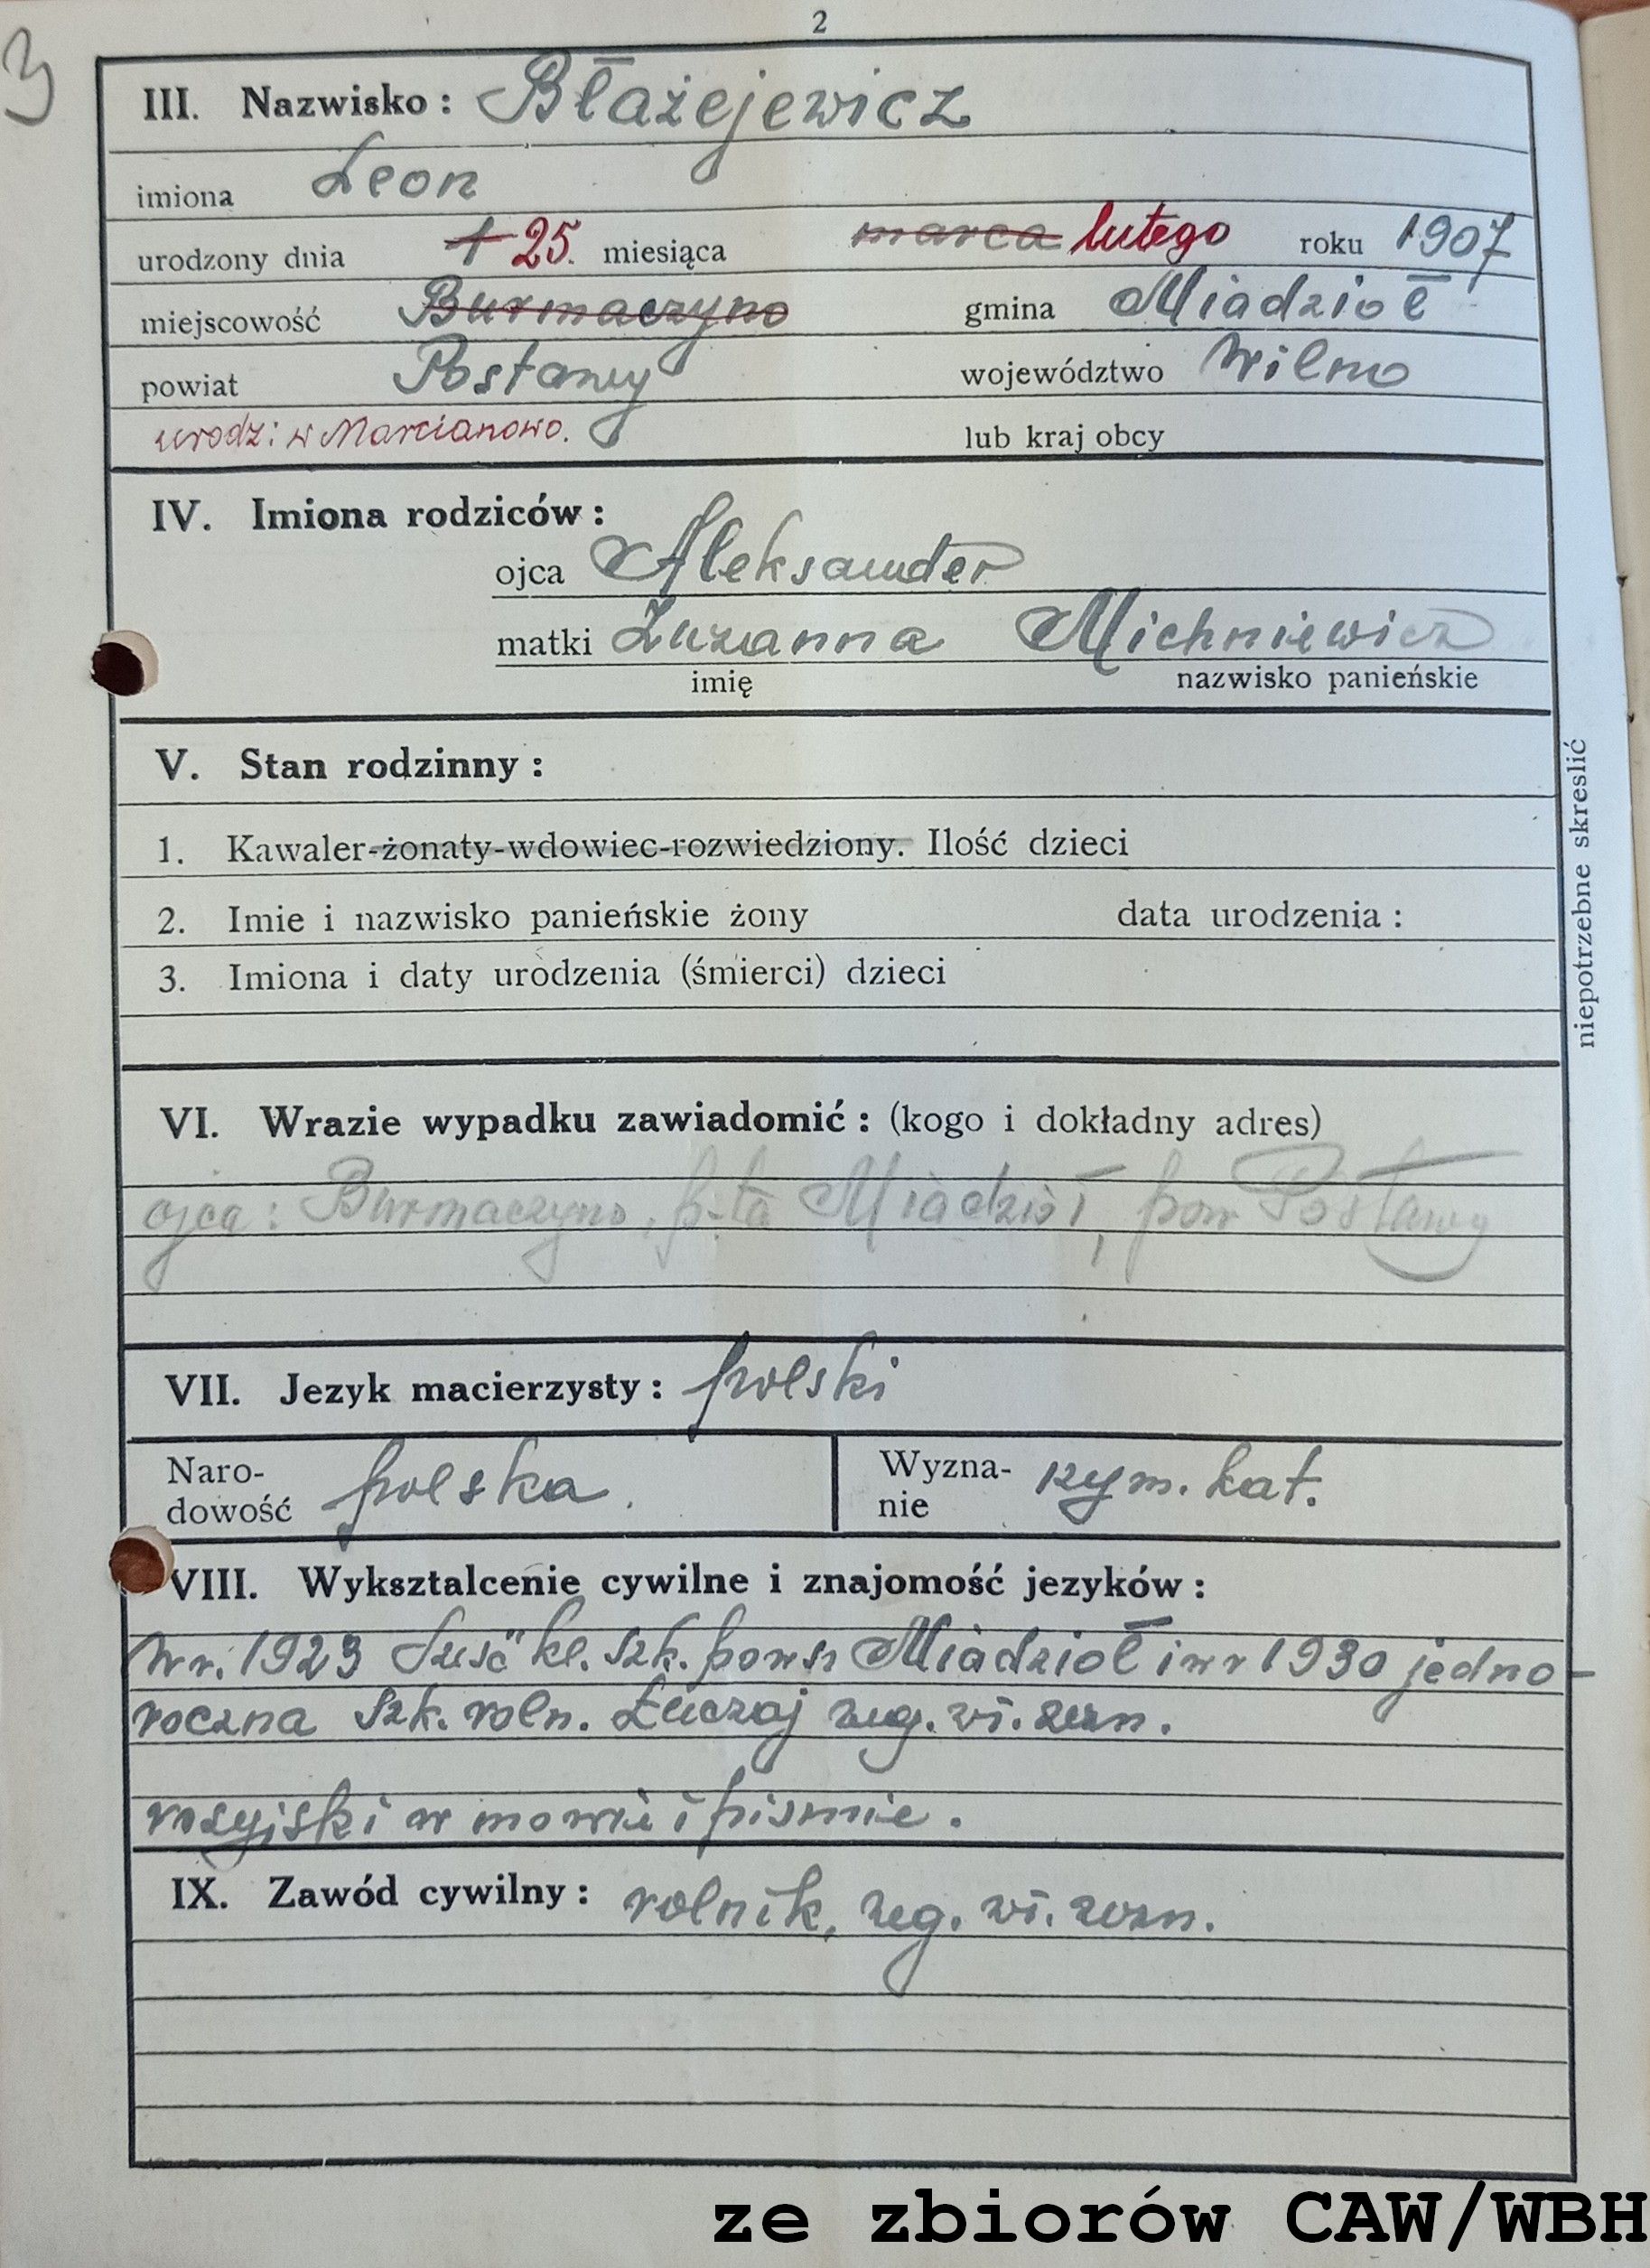 2
3
III. Nazwisko: Błażejewicz
imiona Leon
urodzony dnia 1 25. miesiąca marca lutego roku 1907
miejscowość Burmaczyno gmina Miadzioł
powiat Postawy województwo Wilno
urodz: w Marcianowo. lub kraj obcy
IV. Imiona rodziców:
ojca Aleksander
matki Zuzanna Michniewicz
imię nazwisko panieńskie
V. Stan rodzinny:
1. Kawaler-żonaty-wdowiec-rozwiedziony. Ilość dzieci
2. Imie i nazwisko panieńskie żony data urodzenia:
3. Imiona i daty urodzenia (śmierci) dzieci
niepotrzebne skreslić
VI. Wrazie wypadku zawiadomić: (kogo i dokładny adres)
ojca: Burmaczyno, p-ta Miadzioł, pow Postawy
VII. Jezyk macierzysty: polski
Naro-
dowość polska.
Wyzna-
nie rzym. kat.
VIII. Wyksztalcenie cywilne i znajomość jezyków:
W r. 1923 sześć kl. szk. powsz Miadzioł i w r 1930 jedno-
roczna szk. roln. Łuczaj zeg. wi. zezn.
rosyjski w mowie i piśmie.
IX. Zawód cywilny: rolnik, zeg. wi. zezn.
ze zbiorów CAW/WBH